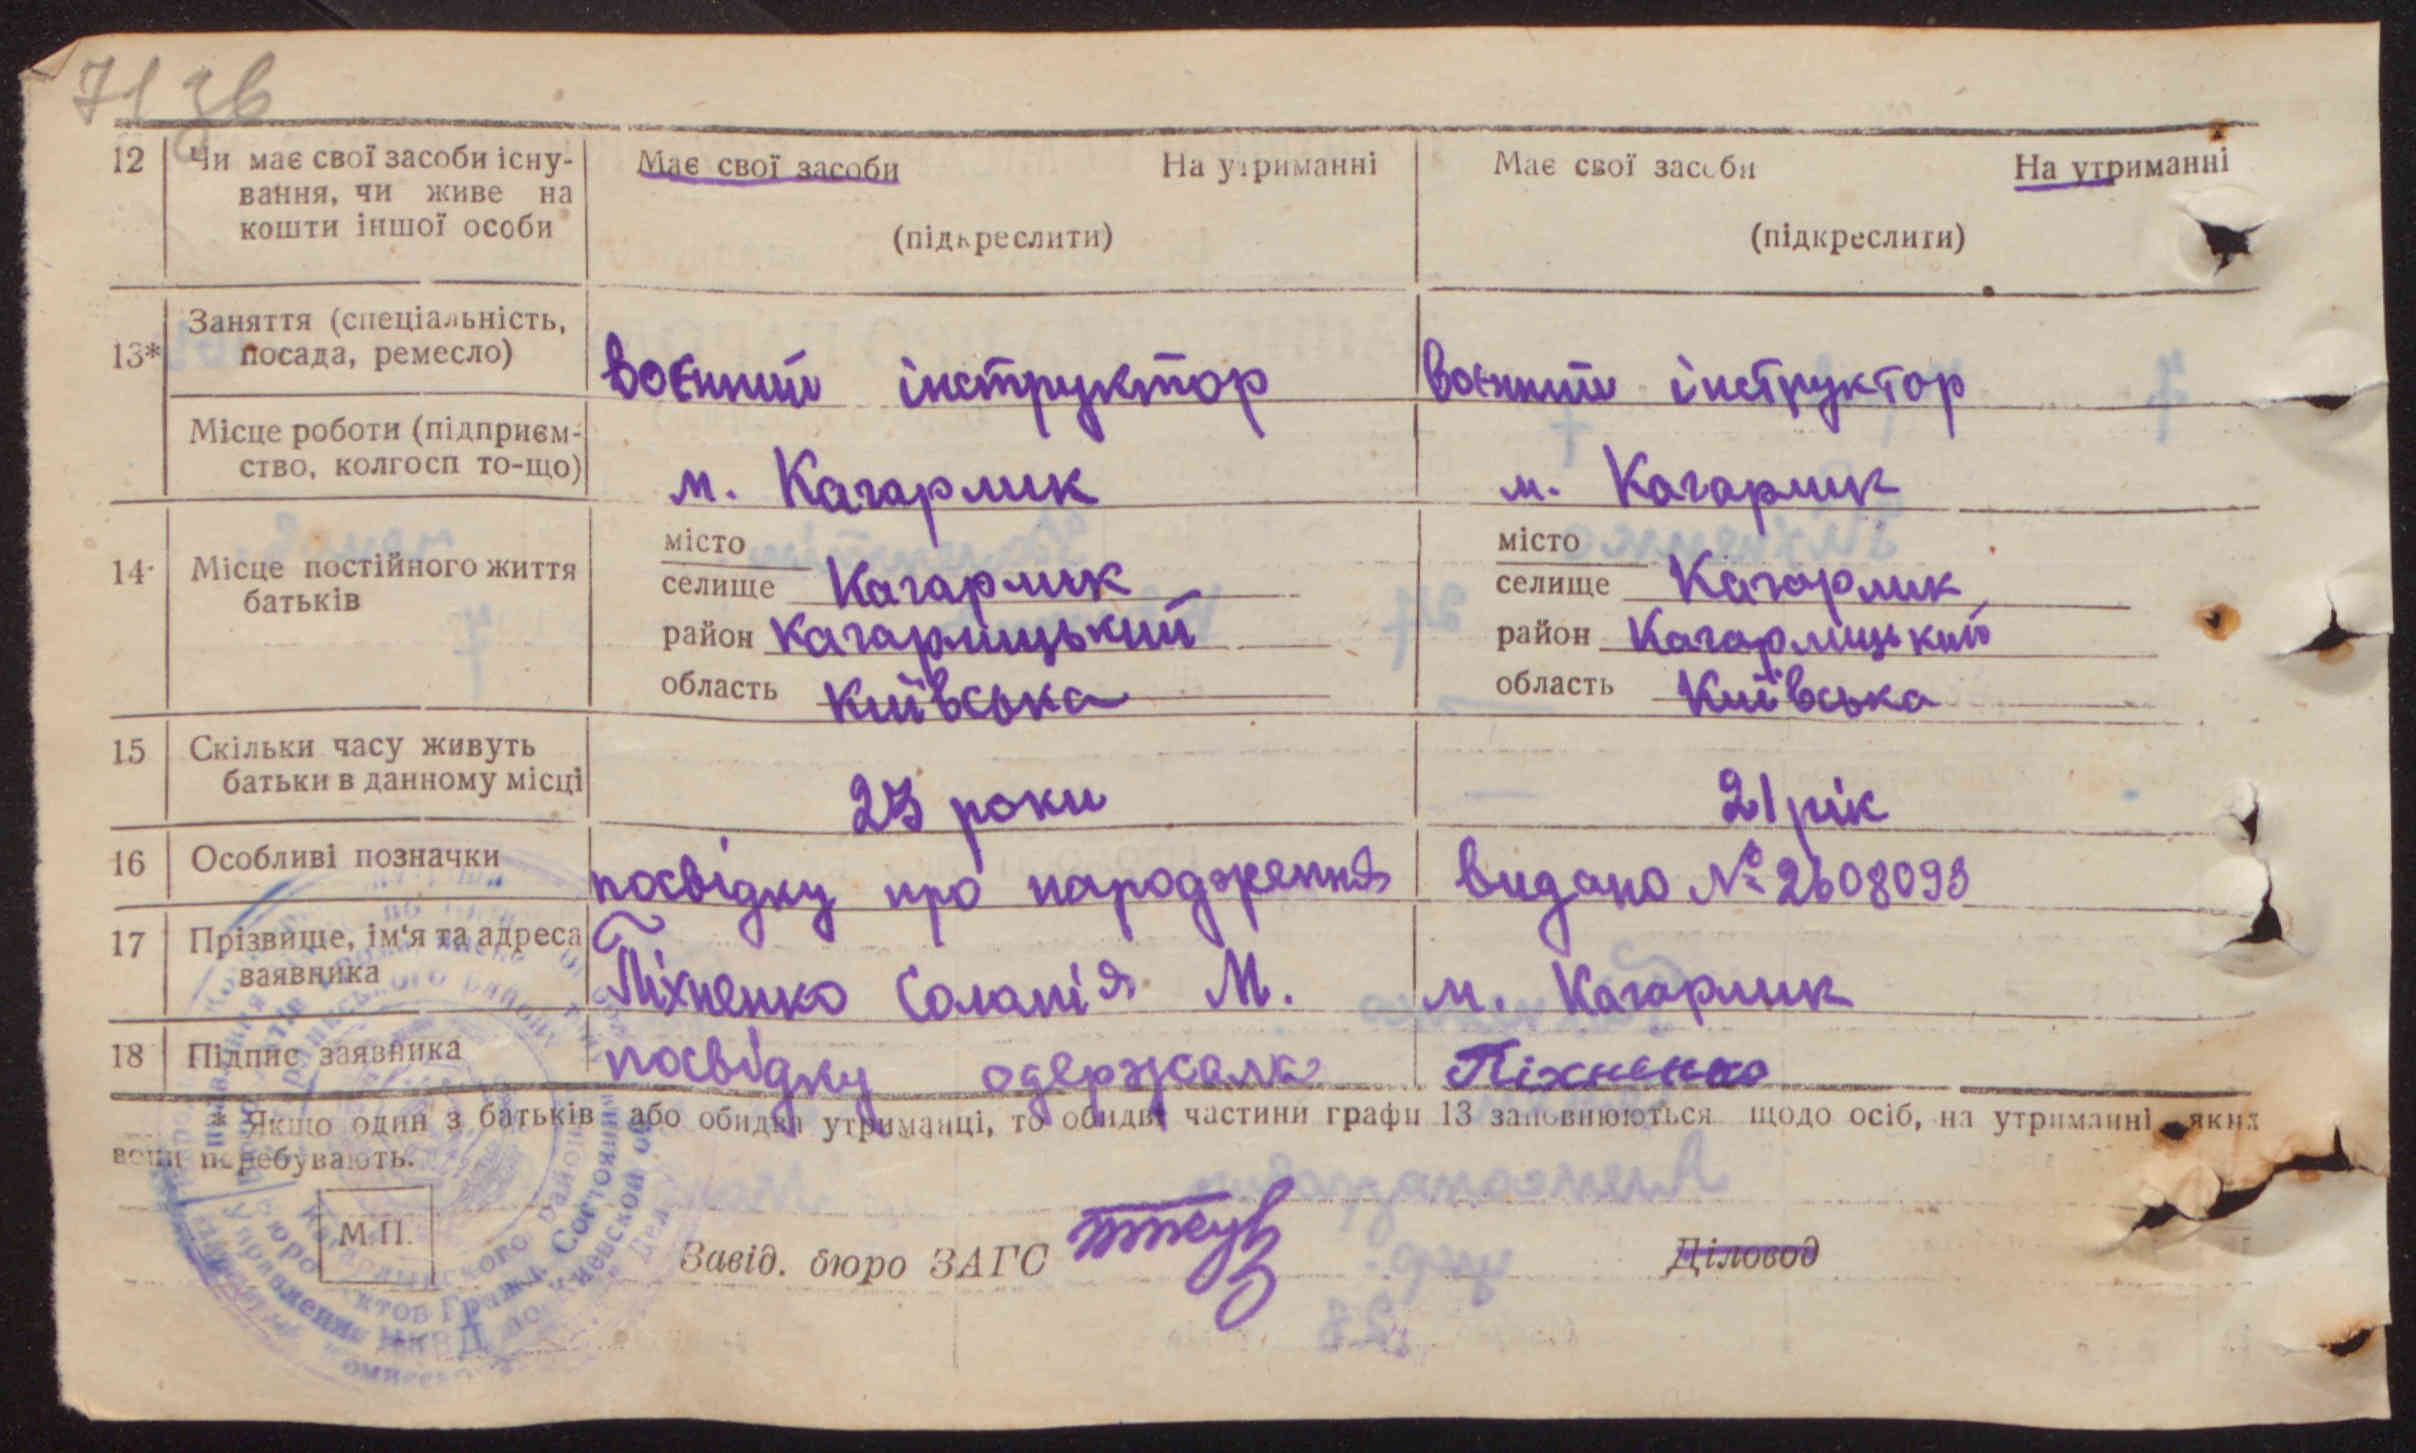 71 зв
12 Чи має свої засоби існу- Має свої засоби На утриманні Має свої засоби На утриманні
вання, чи живе на
кошти іншої особи (підкреслити) (підкреслити)
Заняття (спеціальність,
13* посада, ремесло) воєнний інструктор воєнний інструктор
Місце роботи (підприєм-
ство, колгосп то-що) м. Кагарлик м. Кагарлик
місто місто
14 Місце постійного життя селище Кагарлик селище Кагарлик
батьків район Кагарлицький район Кагарлицький
область Київська область Київська
15 Скільки часу живуть
батьки в данному місці 23 роки 21 рік
16 Особливі позначки посвідку про народження видано № 2608093
17 Прізвище, ім'я та адреса
заявника Піхненко Соломія М. м. Кагарлик
18 Підпис заявника посвідку одержала Піхненко
* Якщо один з батьків або обидва утриманці, то обидві частини графи 13 заповнюються щодо осіб, на утриманні яких
вони перебувають.
М.П.
Завід. бюро ЗАГС Діловод